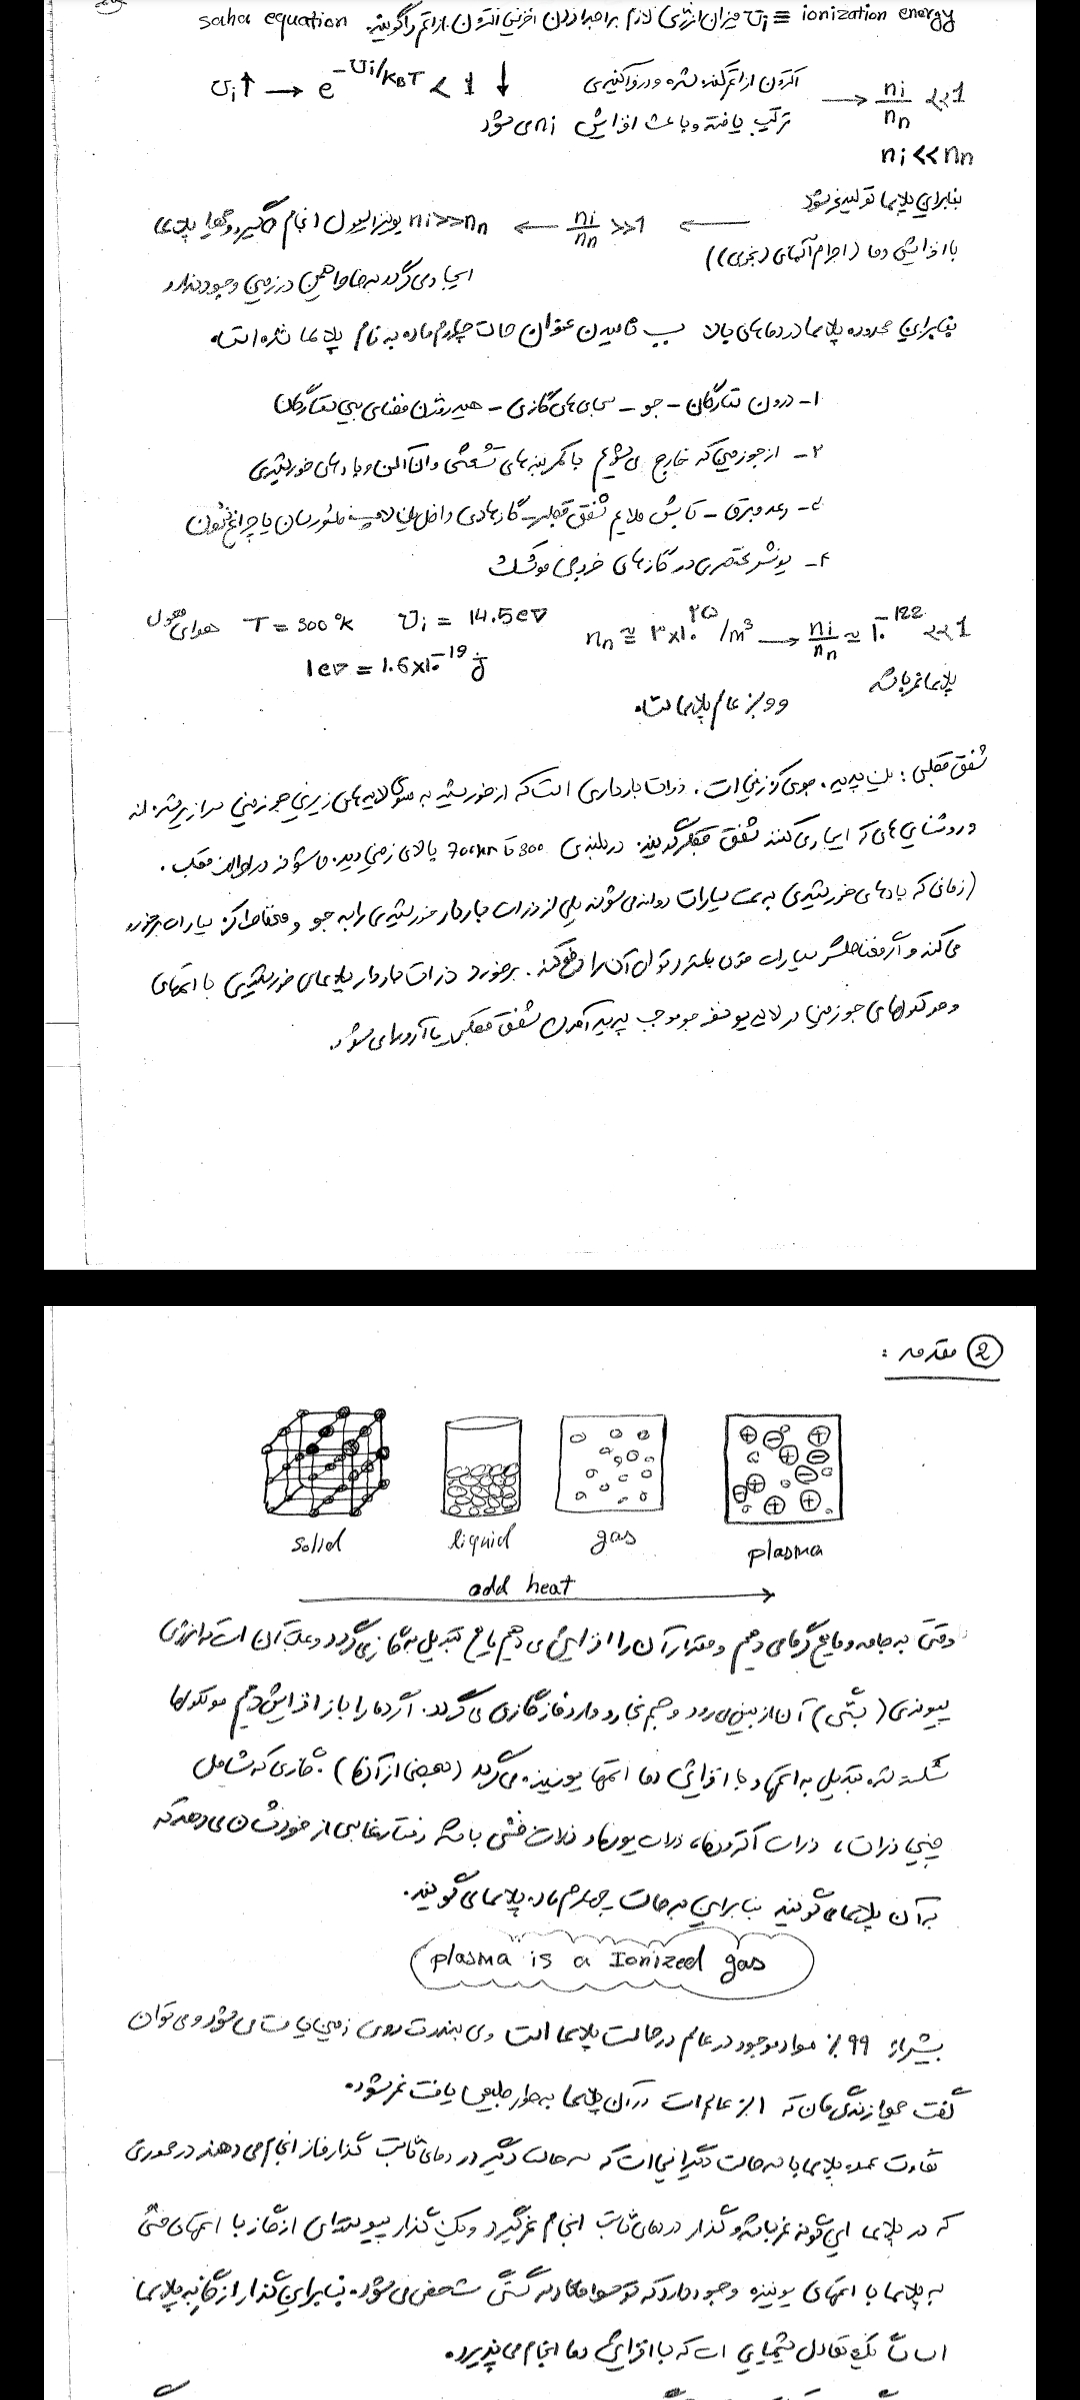 saha equation میزان انرژی لازم برای جدا کردن آخرین الکترون از اتم را گویند. Ui ≡ ionization energy
Ui↑ → e^-Ui/KBT < 1 ↓ الکترون از اتم کنده شده و در واکنش → ni/nn <<1
ترکیب یافته و باعث افزایش ni می شود
ni << nn
بنابراین پلاسما تولید نمی‌شود
با افزایش دما (اجرام آسمانی (نجومی)) ← ni/nn >>1 ← ni>>nn یونیزاسیون انجام می گیرد و پلاسما
ایجاد می گردد به خاطر همین در زمین وجود ندارد
بنابراین محدوده پلاسما در دماهای بالا سبب نامیدن عنوان حالت چهارم ماده به نام پلاسما شده است.
۱- درون ستارگان - جو - سحابی های گازی - هیدروژن فضای بین ستارگان
۲- از جو زمین که خارج می شویم با کمربندهای تشعشعی وان آلن و بادهای خورشیدی
۳- رعد و برق - تابش ملایم شفق قطبی - گازهای داخل لامپ فلورسان یا چراغ نئون
۴- یونش مختصری در گازهای خروجی موشک
هوای معمولی T = 300 °K Ui = 14.5 ev nn ≅ ۳×۱۰^۲۵/m³ → ni/nn ≅ 10^-122 <<1
1ev = 1.6×10^-19 j
پلاسما نمی باشد
۹۹٪ عالم پلاسما است.
شفق قطبی: یک پدیده جوی کره زمین است. ذرات بارداری است که از خورشید به سوی لایه های زیرین جو زمین سرازیر شده اند
و روشنایی هایی که ایجاد می کنند شفق قطبی گویند. در بلندی 300 تا 700km بالای زمین دیده می شوند در اطراف قطب.
(زمانی که بادهای خورشیدی به سمت سیارات روانه می شوند یکی از ذرات باردار خورشیدی را به جو و مغناطیس کره سیارات برخورد
می کند و اگر مغناطیس سیارات قوی باشد می توان آن را دفع کند. برخورد ذرات باردار پلاسمای خورشیدی با اتمهای
و مولکولهای جو زمین در لایه یونسفر جو موجب پدید آمدن شفق قطبی یا آرورا می شود.
② مقدمه :
solid liquid gas plasma
add heat
وقتی به جامد و مایع گرما می دهیم و مقدار آن را افزایش می دهیم مایع تبدیل به گاز می گردد و علت آن است که انرژی
پیوندی (بستگی) آن از بین می رود و حجم بخار رو دارد فاز گازی می گردد. اگر دما را باز افزایش دهیم مولکولها
شکسته شده تبدیل به اتمها و با افزایش دما اتمها یونیزه می گردد (بعضی از آنها). گازی که شامل
چنین ذرات، ذرات الکترونها، ذرات یونها و ذرات خنثی باشد رفتار خاصی از خود نشان می دهد که
به آن پلاسما می گویند بنابراین به حالت چهارم ماده پلاسما می گویند.
plasma is a Ionized gas
بیش از ۹۹٪ مواد موجود در عالم در حالت پلاسما است ولی بندرت روی زمین یافت می شود و می توان
گفت محل زندگی مان که ۱٪ از عالم است در آن پلاسما به طور طبیعی یافت نمی شود.
تفاوت عمده پلاسما با سه حالت دیگر این است که سه حالت دیگر در دمای ثابت گذار فاز انجام می دهند در صورتی
که در پلاسما این گونه نمی باشد و گذار در دمای ثابت انجام نمی گیرد و یک گذار پیوسته ای از گاز با اتمهای خنثی
به پلاسما با اتمهای یونیزه وجود دارد که توسط معادله ساها مشخص می شود. بنابراین گذار از گاز به پلاسما
اساساً یک تعادل شیمیایی است که با افزایش دما انجام می پذیرد.